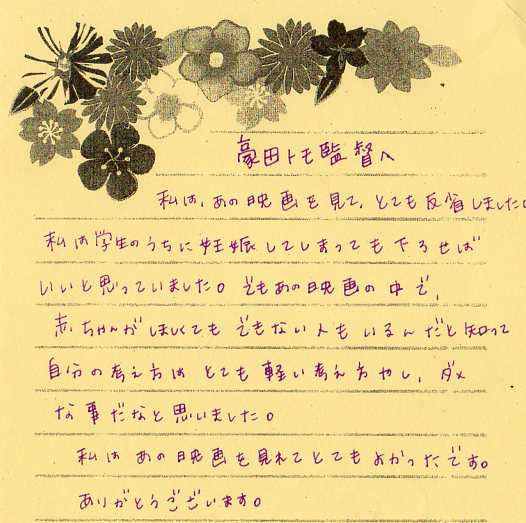 豪田トモ監督へ
私は、あの映画を見て、とても反省しました。
私は学生のうちに妊娠してしまっても下ろせば
いいと思っていました。でもあの映画の中で、
赤ちゃんがほしくてもできない人もいるんだと知って
自分の考え方はとても軽い考え方やし、ダメ
な事だなと思いました。
私はあの映画を見れてとてもよかったです。
ありがとうございます。